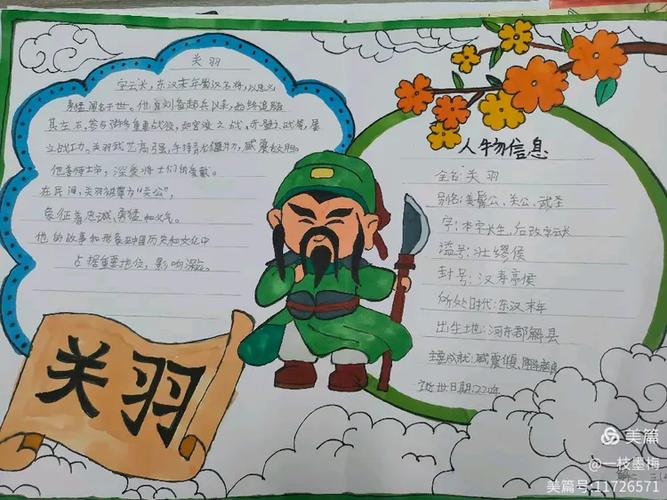 关羽
字云长，东汉末年蜀汉名将，以忠义
勇猛闻名于世。他自刘备起兵以来，始终追随
其左右，参与诸多重要战役，如官渡之战、赤壁之战等，屡
立战功。关羽武艺高强，手持青龙偃月刀，威震敌胆。
他善待士卒，深受将士们的爱戴。
在民间，关羽被尊为“关公”，
象征着忠诚、勇猛和义气。
他的故事和形象在中国历史和文化中
占据重要地位，影响深远。
关羽
人物信息
全名：关羽
别名：美髯公、关公、武圣
字：本字长生，后改字云长
谥号：壮缪侯
封号：汉寿亭侯
所处时代：东汉末年
出生地：河东郡解县
主要成就：威震
逝世日期：220年
美篇
@一枝墨梅
美篇号:11726571